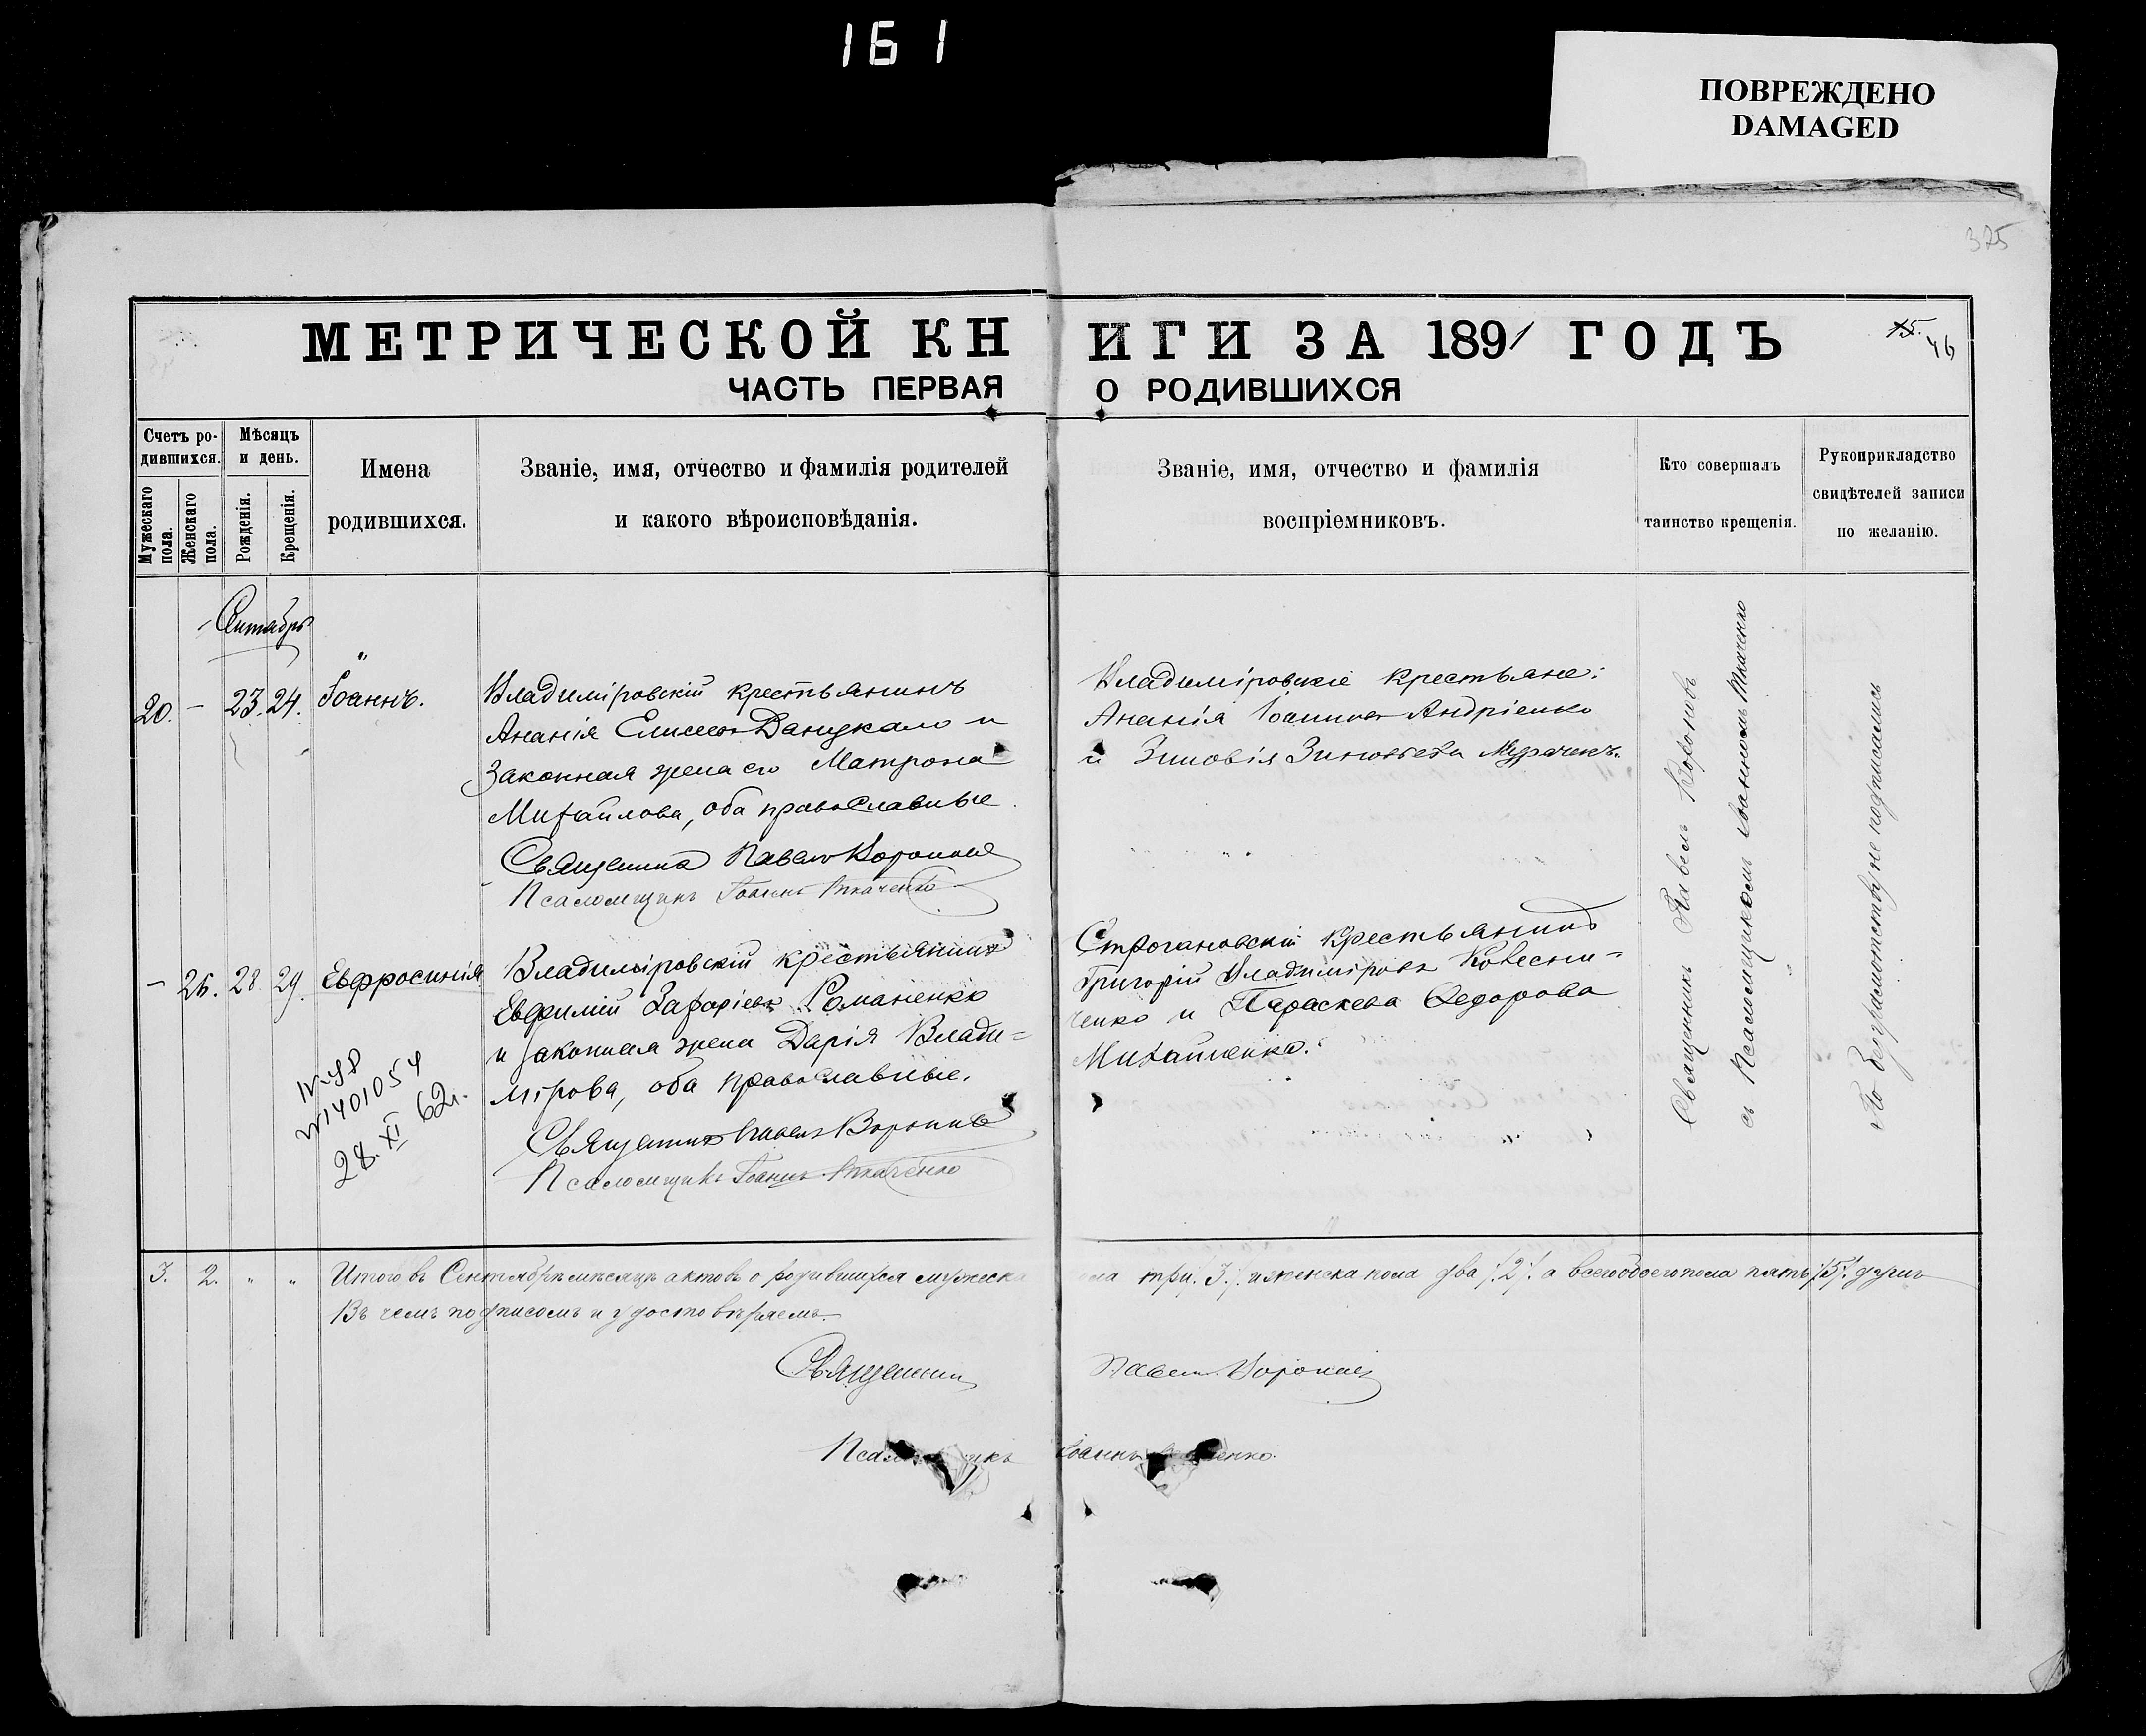 161
ПОВРЕЖДЕНО
DAMAGED
375
МЕТРИЧЕСКОЙ КНИГИ ЗА 1891 ГОДЪ
15. 46
ЧАСТЬ ПЕРВАЯ О РОДИВШИХСЯ
Счетъ ро-
дившихся.
Мужескаго
пола.
Женскаго
пола.
Мѣсяцъ
и день.
Рожденія.
Крещенія.
Имена
родившихся.
Званіе, имя, отчество и фамилія родителей
и какого вѣроисповѣданія.
Званіе, имя, отчество и фамилія
воспріемниковъ.
Кто совершалъ
таинство крещенія.
Рукоприкладство
свидѣтелей записи
по желанію.
Сентябрь
20. - 23. 24. Іоаннъ.
Владиміровскій крестьянинъ
Ананія Елисеевъ Данукало и
законная жена его Матрона
Михайлова, оба православные.
Священникъ Павелъ Вороновъ
Псаломщикъ Іоаннъ Ткаченко
Владиміровскіе крестьяне:
Ананія Іоанновъ Андріенко
и Зиновія Зиновьева
- 26. 28. 29. Евфросинія
Владиміровскій крестьянинъ
Евфимій Захаріевъ Романенко
и законная жена Дарія Влади-
мірова, оба православные.
Священникъ Павелъ Вороновъ
Псаломщикъ Іоаннъ Ткаченко
Строгановскій крестьянинъ
Григорій Владиміровъ Ковесни-
ченко и Параскева Федорова
Михайленко.
28. XI 62г.
Священникъ Павелъ Вороновъ
съ Псаломщикомъ Іоанномъ Ткаченко
По безграмотству не подписались
3. 2. " " Итого въ Сентябрѣ мѣсяцѣ актовъ о родившихся мужеска пола три /3/. и женска пола два /2/. а всего обоего пола пять /5/. душъ
Въ чемъ подписомъ и удостовѣряемъ.
Священникъ Павелъ Вороновъ
Псаломщикъ Іоаннъ Ткаченко.